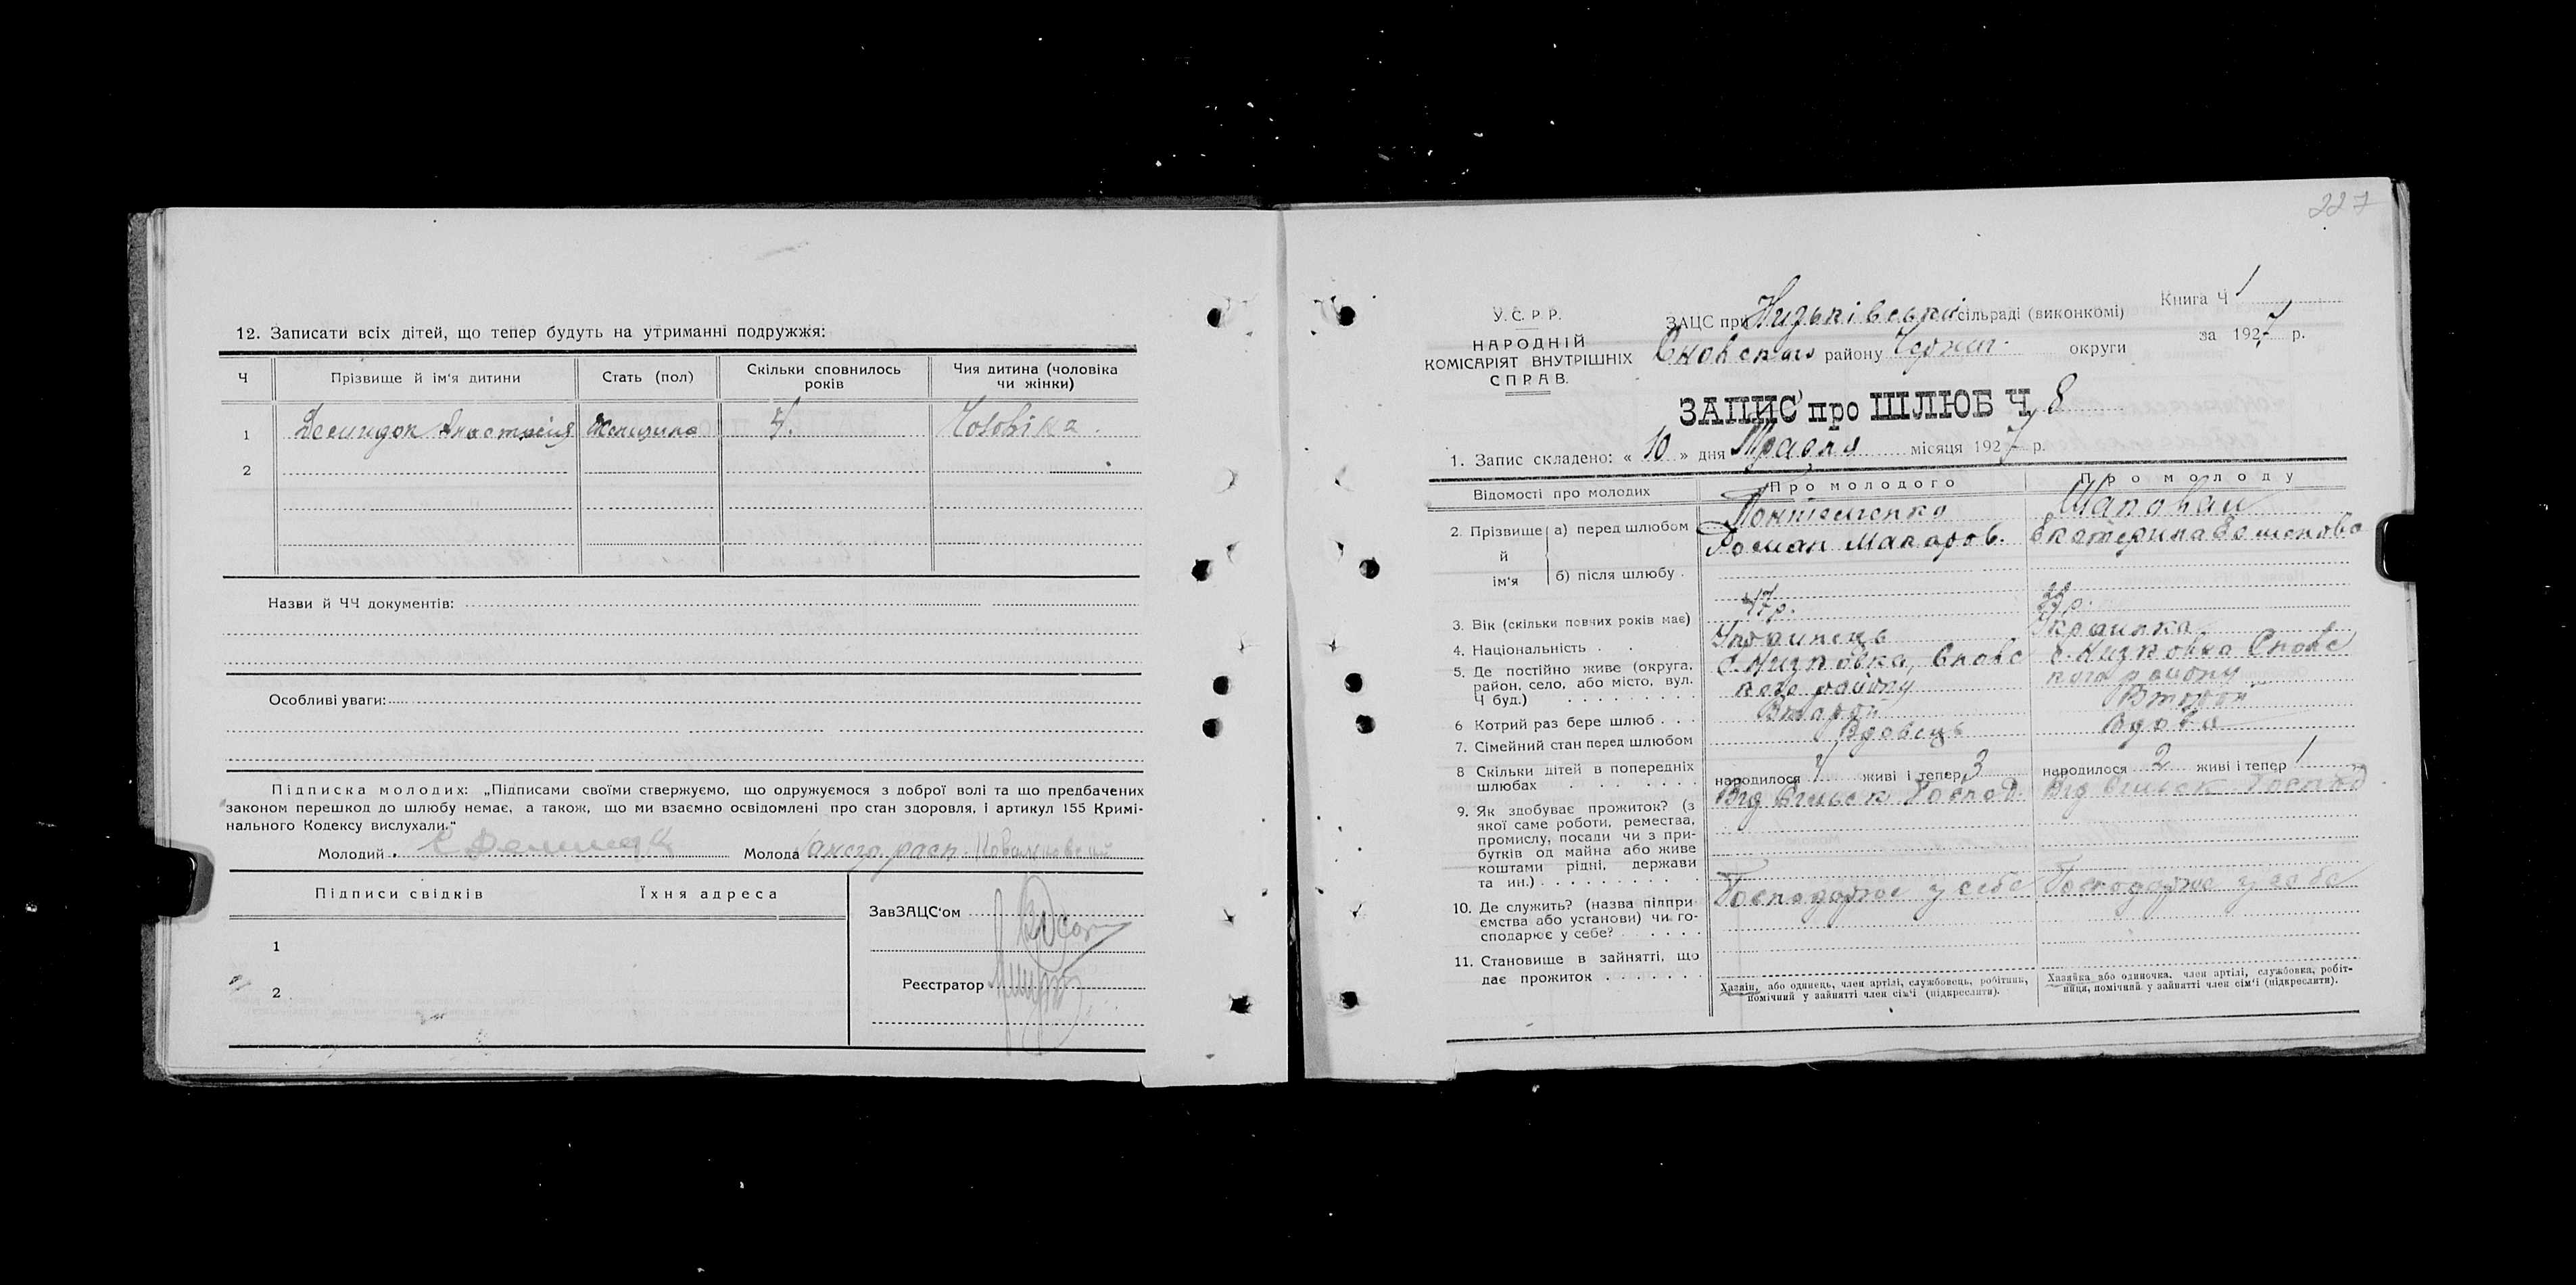 12. Записати всіх дітей, що тепер будуть на утриманні подружжя:
Ч Прізвище й ім'я дитини Стать (пол) Скільки сповнилось років Чия дитина (чоловіка чи жінки)
1 Анастасія Женщина Чоловіка.
2
Назви й ЧЧ документів:
Особливі уваги:
Підписка молодих: „Підписами своїми ствержуємо, що одружуємося з доброї волі та що предбачених
законом перешкод до шлюбу немає, а також, що ми взаємно освідомлені про стан здоровля, і артикул 155 Кримі-
нального Кодексу вислухали."
Молодий Молода
Підписи свідків Їхня адреса
ЗавЗАЦС'ом
1
Реєстратор
2
227
Книга Ч 1
У.С.Р.Р.
НАРОДНІЙ
КОМІСАРІЯТ ВНУТРІШНІХ
СПРАВ.
ЗАЦС при сільраді (виконкомі)
за 1927 р.
Сновского району Черниг. округи
ЗАПИС про ШЛЮБ Ч. 8
1. Запис складено: « 10 » дня Травня місяця 1927 р.
Відомості про молодих Про молодого Про молоду
2. Прізвище й ім'я
а) перед шлюбом Шаповал
Роман Макаров. Екатерина
б) післа шлюбу
3. Вік (скільки повних років має) 47 р.
4. Національність Українець Українка
5. Де постійно живе (округа, район, село, або місто, вул. Ч буд.) с. Низковка, Сновс
кого району с. Низковка Сновс
кого району
6 Котрий раз бере шлюб Второй Второй
7. Сімейний стан перед шлюбом Вдовець Вдова
8 Скільки дітей в попередніх шлюбах народилося живі і тепер 3 народилося 2 живі і тепер 1
9. Як здобуває прожиток? (з якої саме роботи, ремества, промислу, посади чи з при-бутків од майна або живе коштами рідні, держави та ин.) Від Сільськ Господ. Від Сільськ. Господ
10. Де служить? (назва підпри ємства або установи) чи го-сподарює у себе? Господарює у себе Господарює у себе
11. Становище в зайнятті, що дає прожиток
Хазяїн, або одинець, член артілі, службовець, робітник, помічний у зайнятті член сім'ї (підкреслити).
Хазяйка або одиночка, член артілі, службовка, робіт-ниця, помічний у зайнятті член сім'ї (підкреслити).